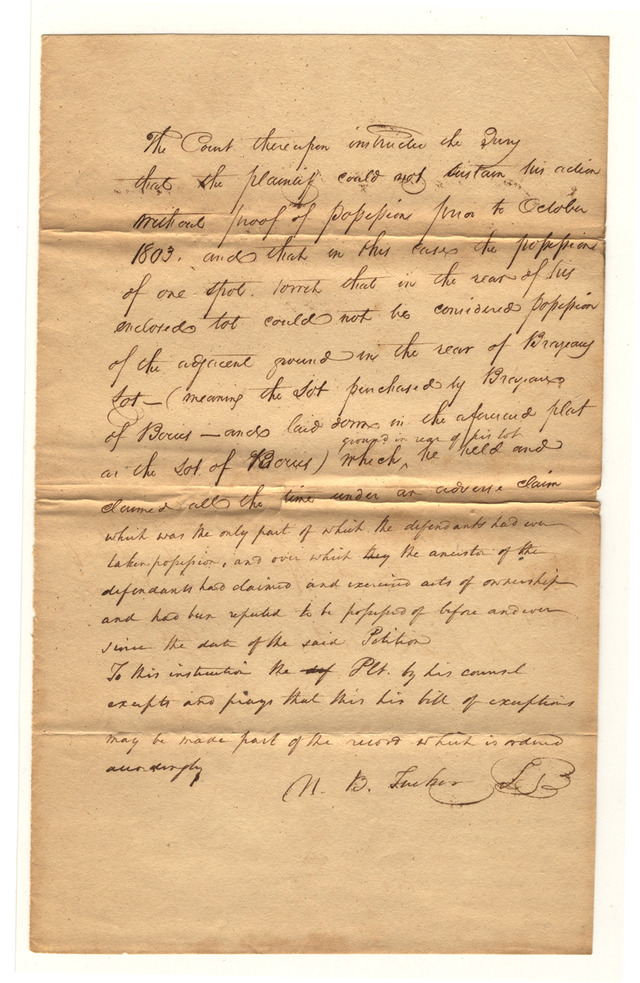 The Court thereupon instructed the Jury
that the plaintif could not sustain his action
without proof of possession prior to October
1803. and that in this case the possession
of one spot. North that in the rear of his
enclosed lot could not be considered possession
of the adjacent ground in the rear of Brazeaus
Lot — (meaning the Lot purchased by Brazeaux
of Bouis — and laid down in the aforesaid plat
ground in rear of his lot
as the Lot of Bouis) which ^ he held and
claimed all the time under an adverse claim
which was the only part of which the defendants had ever
taken possession, and over which they the ancestor of the
defendants had claimed and exercised acts of ownership
and had been reputed to be possessed of before and ever
since the date of the said Petition
To this instruction the def Plt. by his counsel
excepts and prays that this his bill of exceptions
may be made part of the record which is ordered
accordingly
N. B. Tucker LB